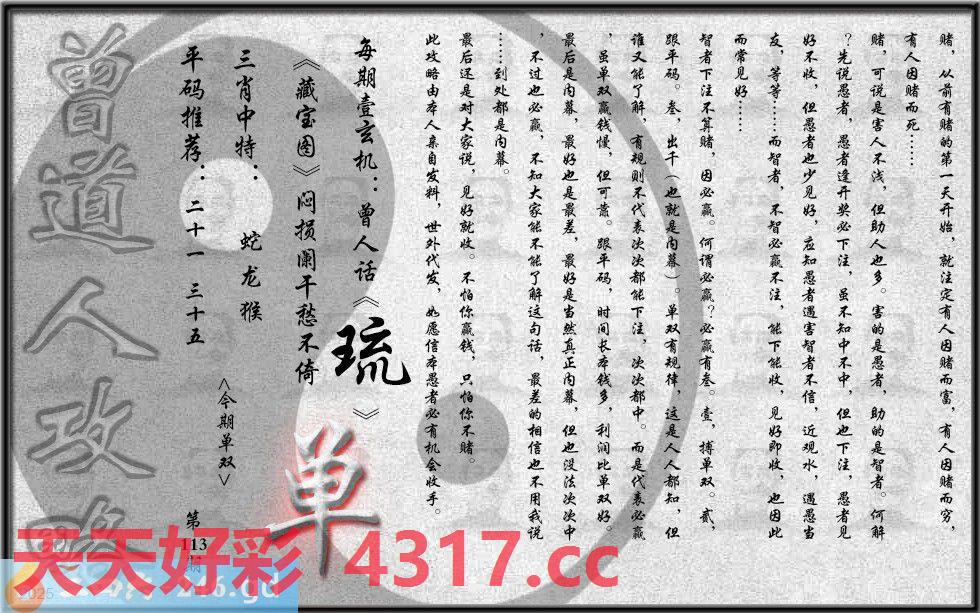 赌，从前有赌的第一天开始，就注定有人因赌而富，有人因赌而穷，
有人因赌而死……
赌，可说是害人不浅，但助人也多。害的是愚者，助的是智者。何解
？先说愚者，愚者逢开奖必下注，虽不知中不中，但也下注，愚者见
好不收，但愚者也少见好，应知愚者遇害智者不信，近观水，遇愚当
友，等等……而智者，不智必赢不注，能下能收，见好即收，也因此
而常见好……
智者下注不算赌，因必赢。何谓必赢？必赢有叁。壹，搏单双。贰，
跟平码。叁，出千（也就是内幕）。单双有规律，这是人人都知，但
谁又能了解，有规则不代表次次都能下注，次次都中。而是代表必赢
，虽单双赢钱慢，但可靠。跟平码，时间长本钱多，利润比单双好。
最后是内幕，最好也是最差，最好是当然真正内幕，但也没法次次中
，不过也必赢，不知大家能不能了解这句话，最差的相信也不用我说
……到处都是内幕。
最后还是对大家说，见好就收。不怕你赢钱，只怕你不赌。
此攻略由本人亲自发料，世外代发，如愿信本愚者必有机会收手。
每期壹玄机：曾人话《琉》
《藏宝图》闷损阑干愁不倚
单
三肖中特：蛇龙猴
平码推荐：二十一 三十五
<今期单双>
第113期
曾道人攻略
天天好彩 4317.cc
2025